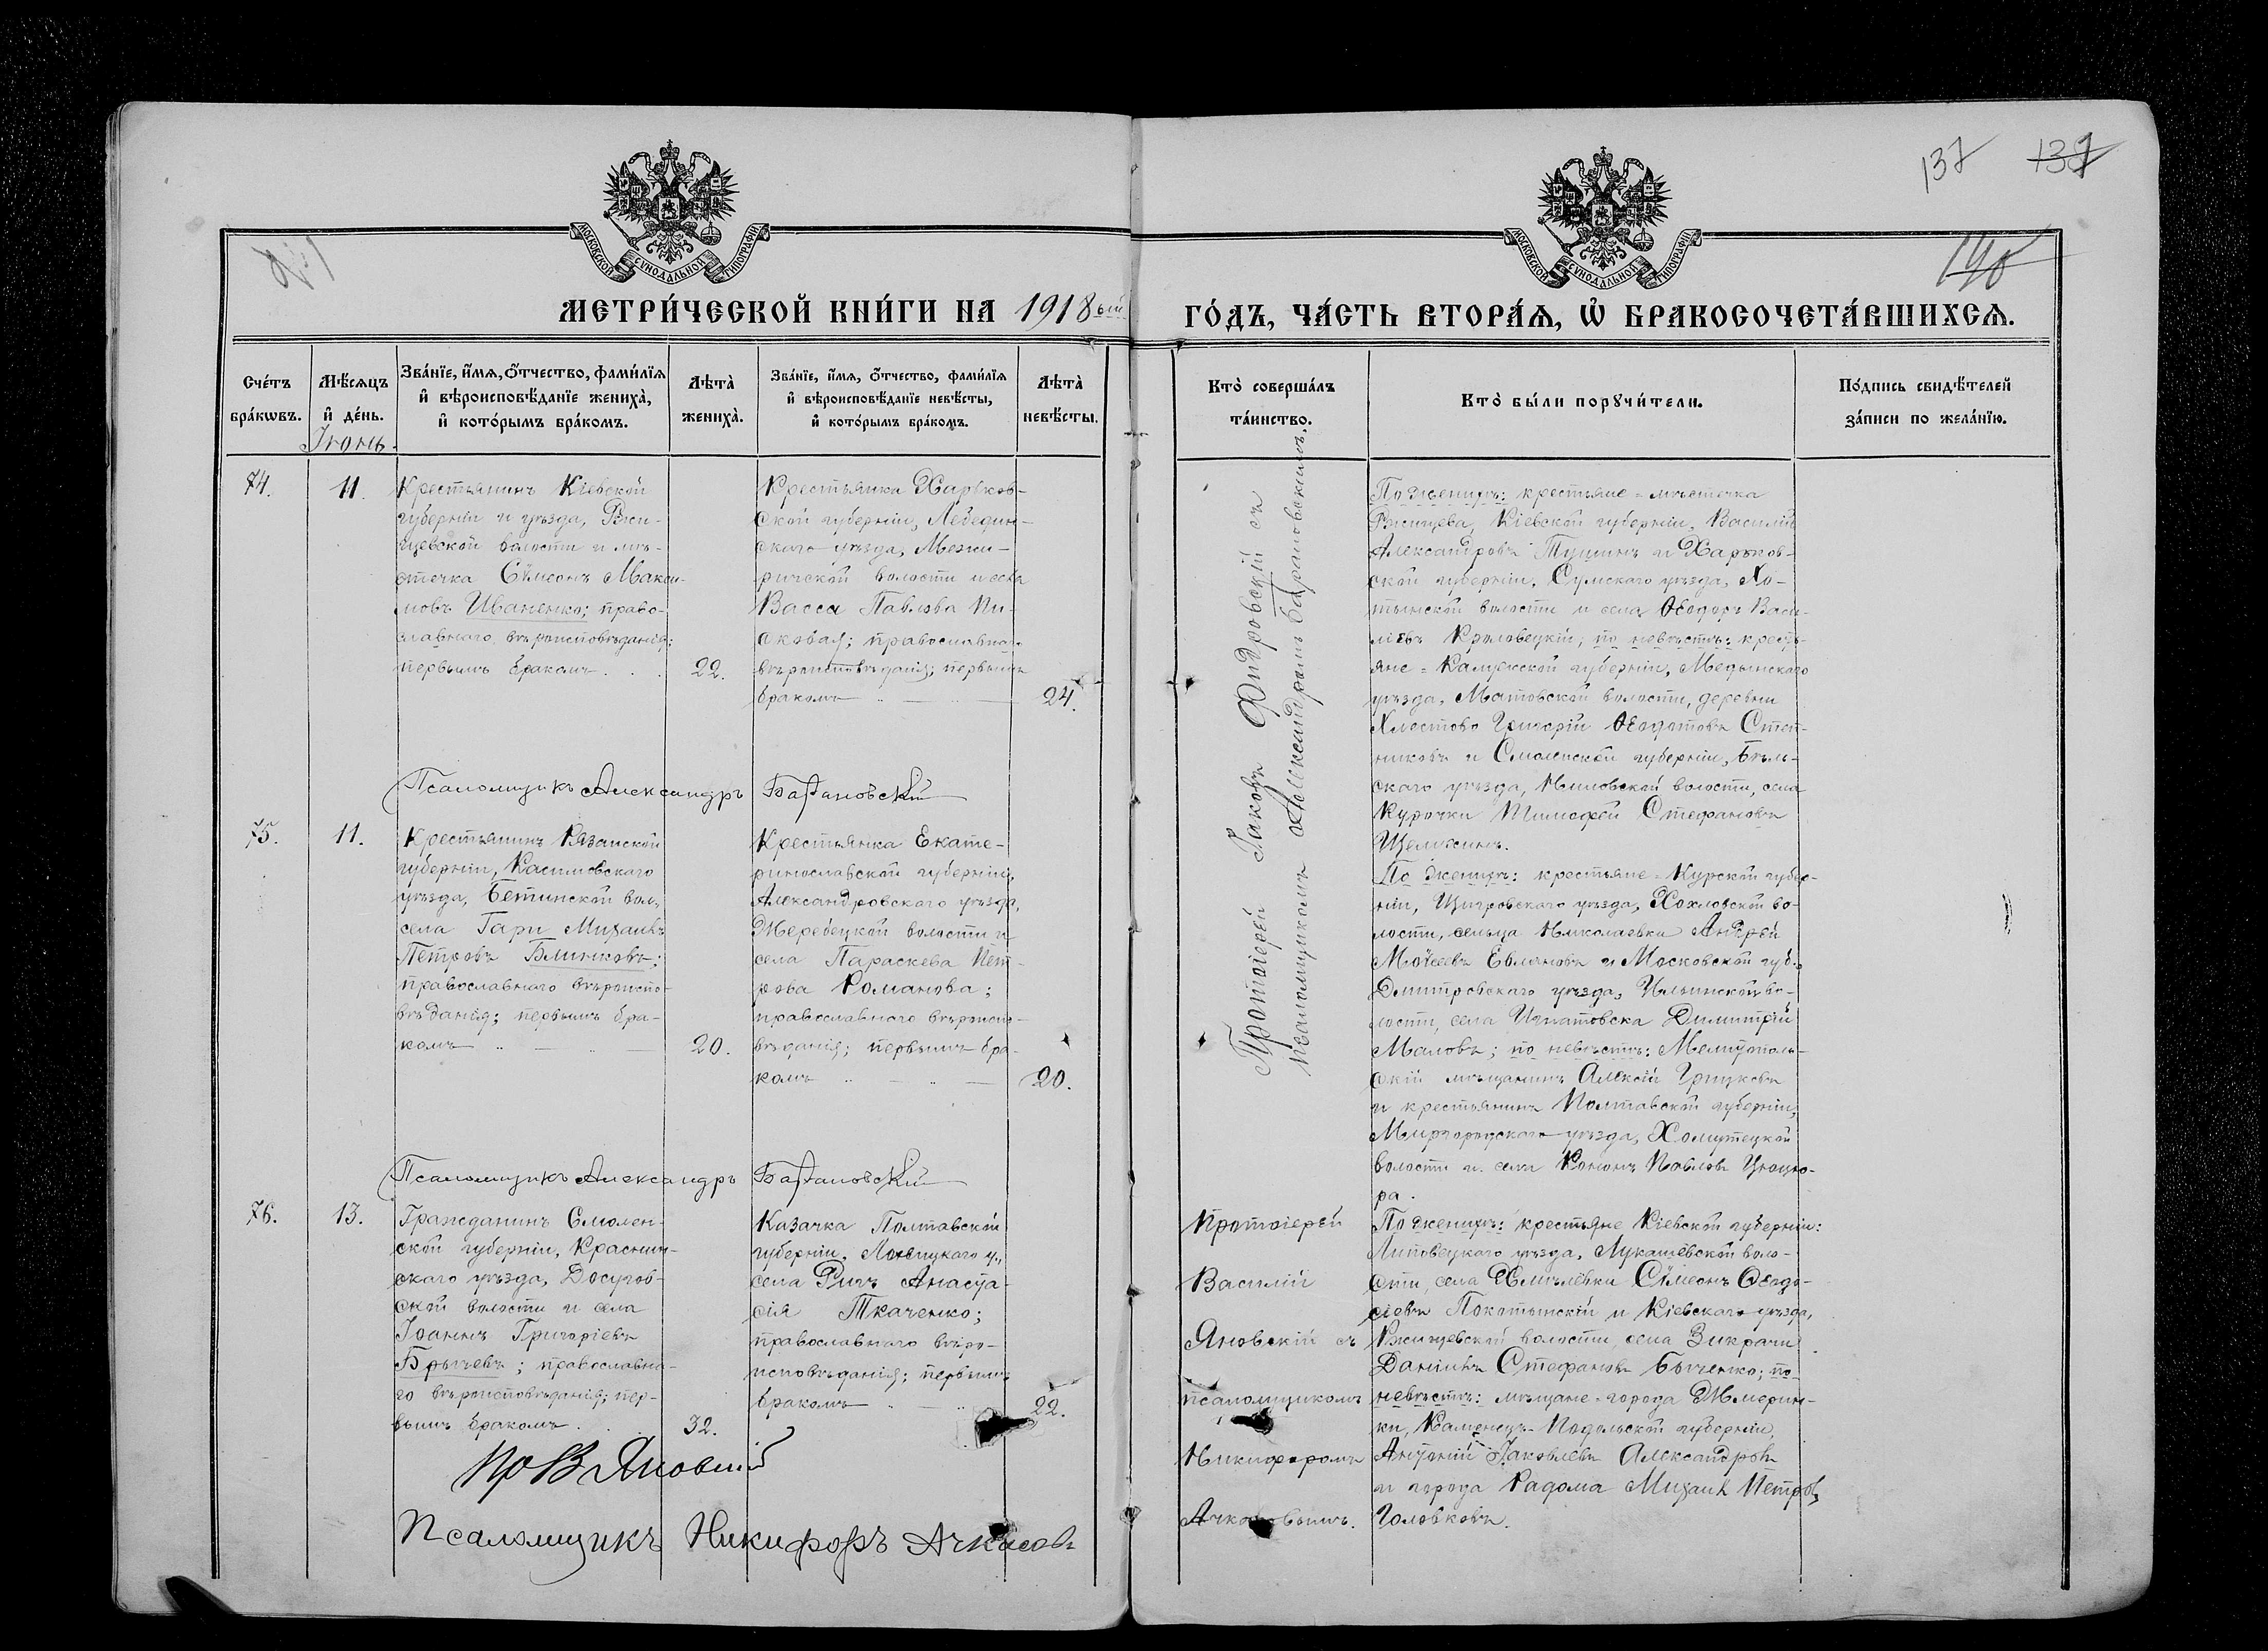 137 139
140
МОСКОВСКОЙ СУНОДАЛЬНОЙ ТИПОГРАФІИ
МОСКОВСКОЙ СУНОДАЛЬНОЙ ТИПОГРАФІИ
МЕТРИ́ЧЕСКОЙ КНИ́ГИ НА 1918ый
ГО́ДЪ, ЧА́СТЬ ВТОРА́Я, Ѡ҆ БРАКОСОЧЕТА́ВШИХСЯ.
Сче́тъ
бра́кѡвъ.
Мѣ́сяцъ
и҆ де́нь.
Іюнь.
Зва́нїе, и҆́мя, ѻ҆́тчество, фами́лїя
и҆ вѣроисповѣ́данїе жениха̀,
и҆ кото́рымъ бра́комъ.
Лѣта̀
жениха̀.
Зва́нїе, и҆́мя, ѻ҆́тчество, фами́лїя
и҆ вѣроисповѣ́данїе невѣ́сты,
и҆ кото́рымъ бра́комъ.
Лѣта̀
невѣ́сты.
Кто̀ соверша́лъ
та́инство.
Кто̀ бы́ли порꙋчи́тели.
По́дпись свидѣ́телей
за́писи по жела́нїю.
74.
11.
Крестьянинъ Кіевской
губерніи и уѣзда, Ржи-
щевской волости и мѣ-
стечка Сѵмеонъ Макси-
мовъ Иваненко; право-
славнаго вѣроисповѣданія;
первымъ бракомъ . . .
22.
Крестьянка Харьков-
ской губерніи, Лебедин-
скаго уѣзда, Межи-
ричской волости и села
Васса Павлова Пи-
сковая; православнаго
вѣроисповѣданія; первымъ
бракомъ
24.
Протоіерей Іаковъ Фидровскій съ
псаломщикомъ Александромъ Барановскимъ.
По женихѣ: крестьяне - мѣстечка
Ржищева, Кіевской губерніи, Василій
Александровъ Тушинъ и Харьков-
ской губерніи, Сумскаго уѣзда, Хо-
тынской волости и села Ѳеодоръ Васи-
ліевъ Кроловецкій; по невѣстѣ: кресть-
яне - Калужской губерніи, Медынскаго
уѣзда, Матовской волости, деревни
Хлестово Григорій Ѳеодотовъ Степ-
никовъ и Смоленской губерніи, Бѣль-
скаго уѣзда, волости, села
Курочки Тимофей Стефановъ
Щелкинъ.
Псаломщикъ Александръ Барановскій
75.
11.
Крестьянинъ Рязанской
губерніи, Касимовскаго
уѣзда, Бетинской вол.,
села Гари Михаилъ
Петровъ Блинковъ;
православнаго вѣроиспо-
вѣданія; первымъ бра-
комъ
20.
Крестьянка Екате-
ринославской губерніи,
Александровскаго уѣзда,
Жеребецкой волости и
села Параскева Пет-
рова Романова;
православнаго вѣроиспо-
вѣданія; первымъ бра-
комъ
20.
По женихѣ: крестьяне - Курской губер-
ніи, Щигровскаго уѣзда, Хохловской во-
лости, сельца Николаевки Андрей
Моѵсеевъ Евлановъ и Московской губ.,
Дмитровскаго уѣзда, Ильинской во-
лости, села Игнатовска Димитрій
Маловъ; по невѣстѣ: Мелитополь-
скій мѣщанинъ Алексій Грицковъ
и крестьянинъ Полтавской губерніи,
Миргородскаго уѣзда, Хомутецкой
волости и села Кононъ Павловъ
ра.
Псаломщикъ Александръ Барановскій
76.
13.
Гражданинъ Смолен-
ской губерніи, Краснин-
скаго уѣзда, Досугов-
ской волости и села
Іоаннъ Григоріевъ
Брычевъ; православна-
го вѣроисповѣданія; пер-
вымъ бракомъ . .
32.
Казачка Полтавской
губерніи, Лохвицкаго у.,
села Ригъ Анаста-
сія Ткаченко;
православнаго вѣро-
исповѣданія; первымъ
бракомъ
22.
Протоіерей
Василій
Яновскій съ
псаломщикомъ
Никифоромъ
По женихѣ: крестьяне Кіевской губерніи:
Липовецкаго уѣзда, Лукашевской воло-
сти, села Хмѣлёвки Сѵмеонъ Ѳеодо-
сіевъ Покотынскій и Кіевскаго уѣзда,
Ржищевской волости, села Зикрачи
Даніилъ Стефановъ Бычченко; по
невѣстѣ: мѣщане - города Жмерин-
ки, Каменецъ-Подольской губерніи,
Антоній Іаковлевъ Александровъ
и города Радома Михаилъ Петровъ
Головковъ.
Пр В Яновскій
Псаломщикъ Никифоръ Ачкасовъ